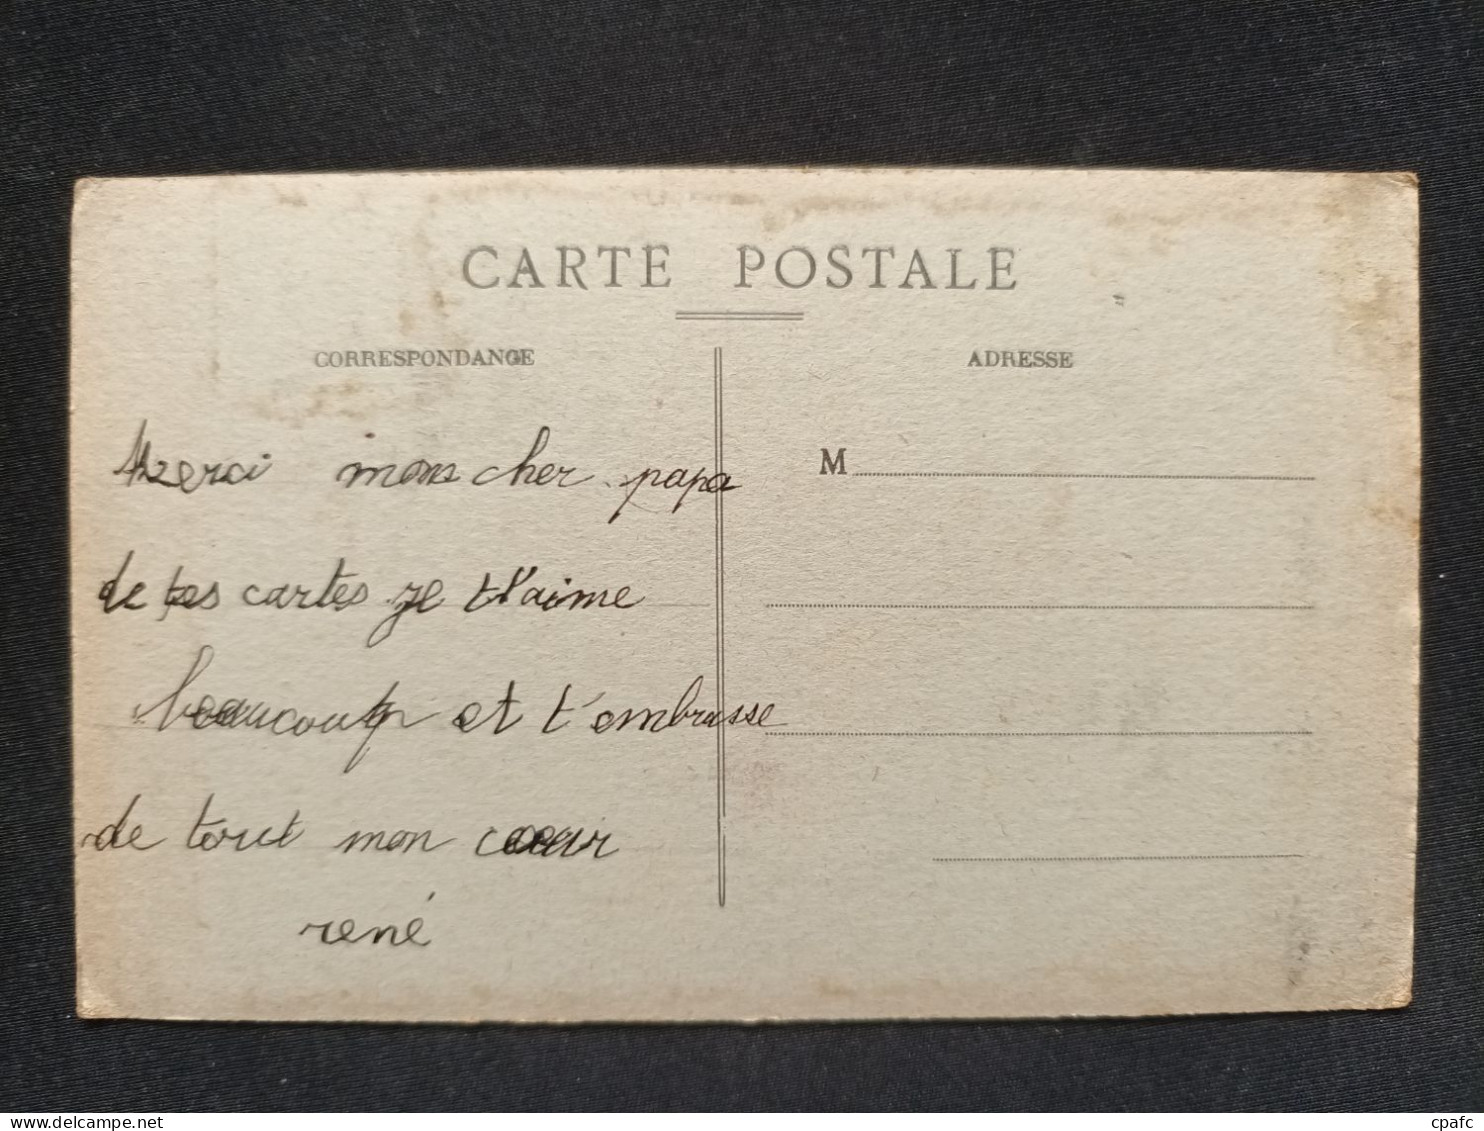 CARTE POSTALE
CORRESPONDANCE
ADRESSE
Merci mon cher papa
M
de tes cartes je t'aime
beaucoup et t'embrasse
de tout mon coeur
rené
delcampe.net
cpafc